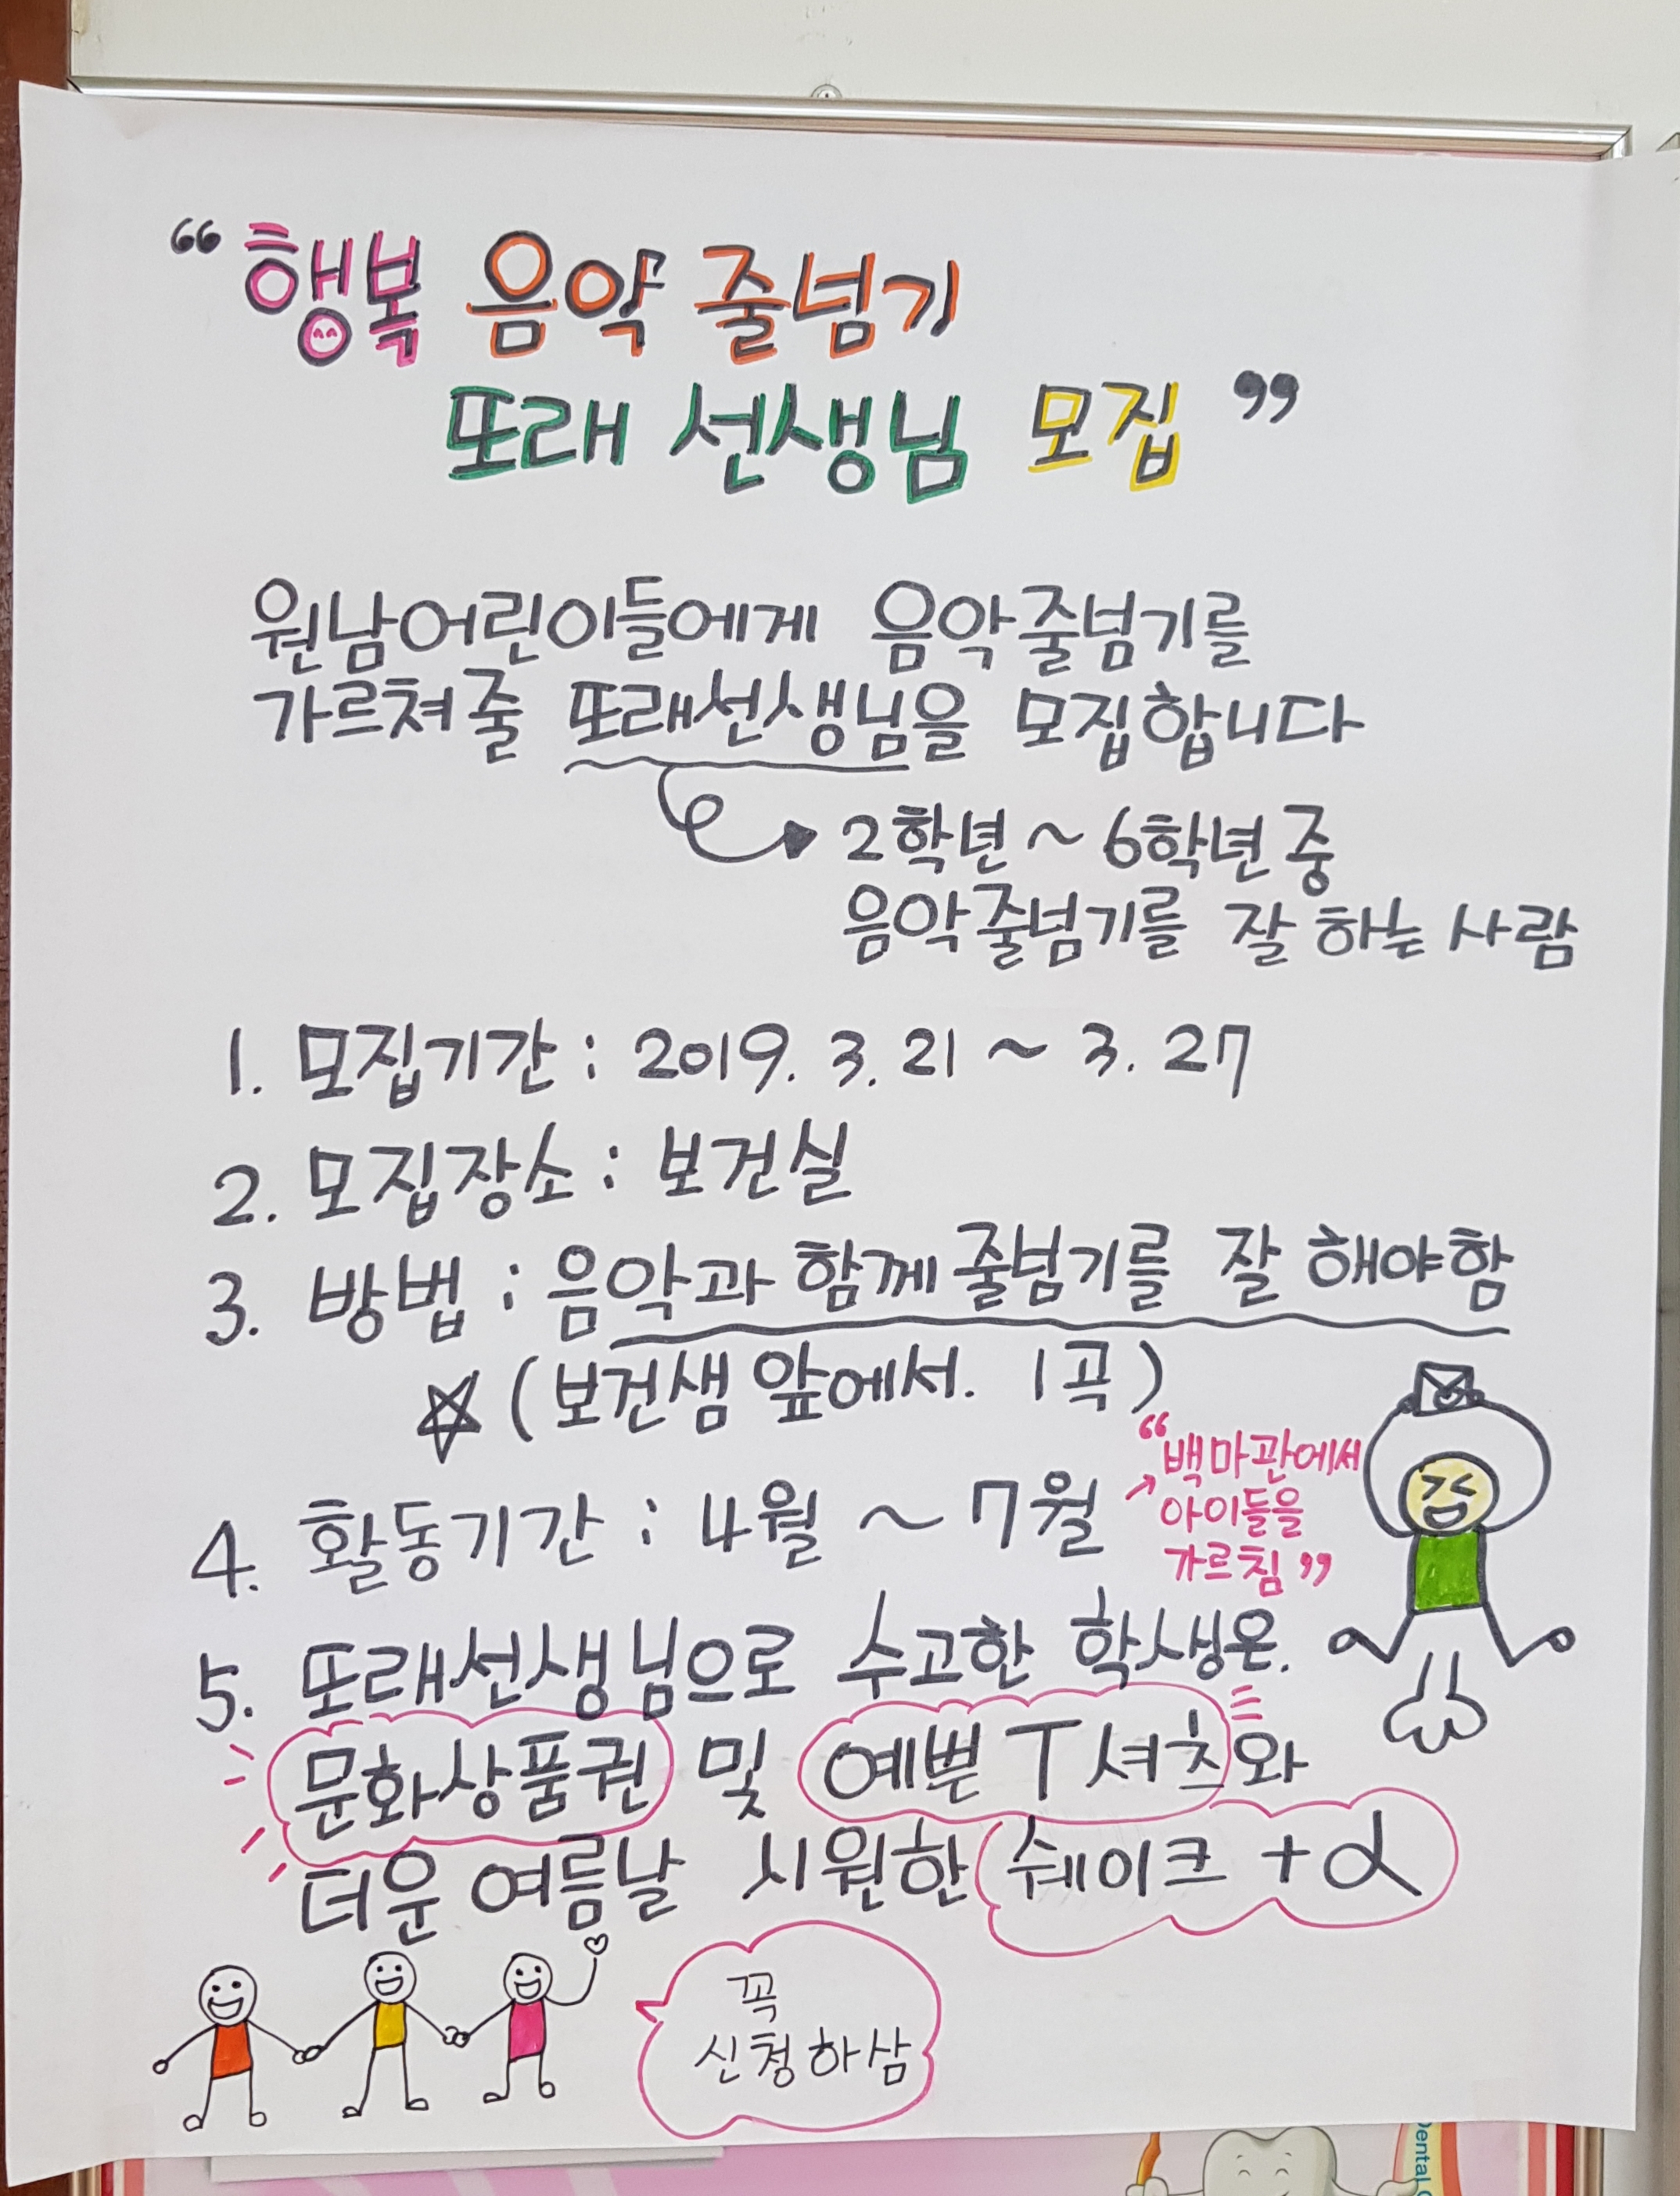 “행복 음악 줄넘기
또래 선생님 모집”
원남어린이들에게 음악줄넘기를
가르쳐 줄 또래선생님을 모집합니다
2학년 ~ 6학년 중
음악줄넘기를 잘 하는 사람
1. 모집기간 : 2019. 3. 21 ~ 3. 27
2. 모집장소 : 보건실
3. 방법 : 음악과 함께 줄넘기를 잘 해야함
☆ (보건샘 앞에서. 1곡)
4. 활동기간 : 4월 ~ 7월
“백마관에서
아이들을
가르침”
5. 또래선생님으로 수고한 학생은.
문화상품권 및 예쁜 T셔츠와
더운 여름날 시원한 쉐이크 + α
꼭
신청하삼
Dental